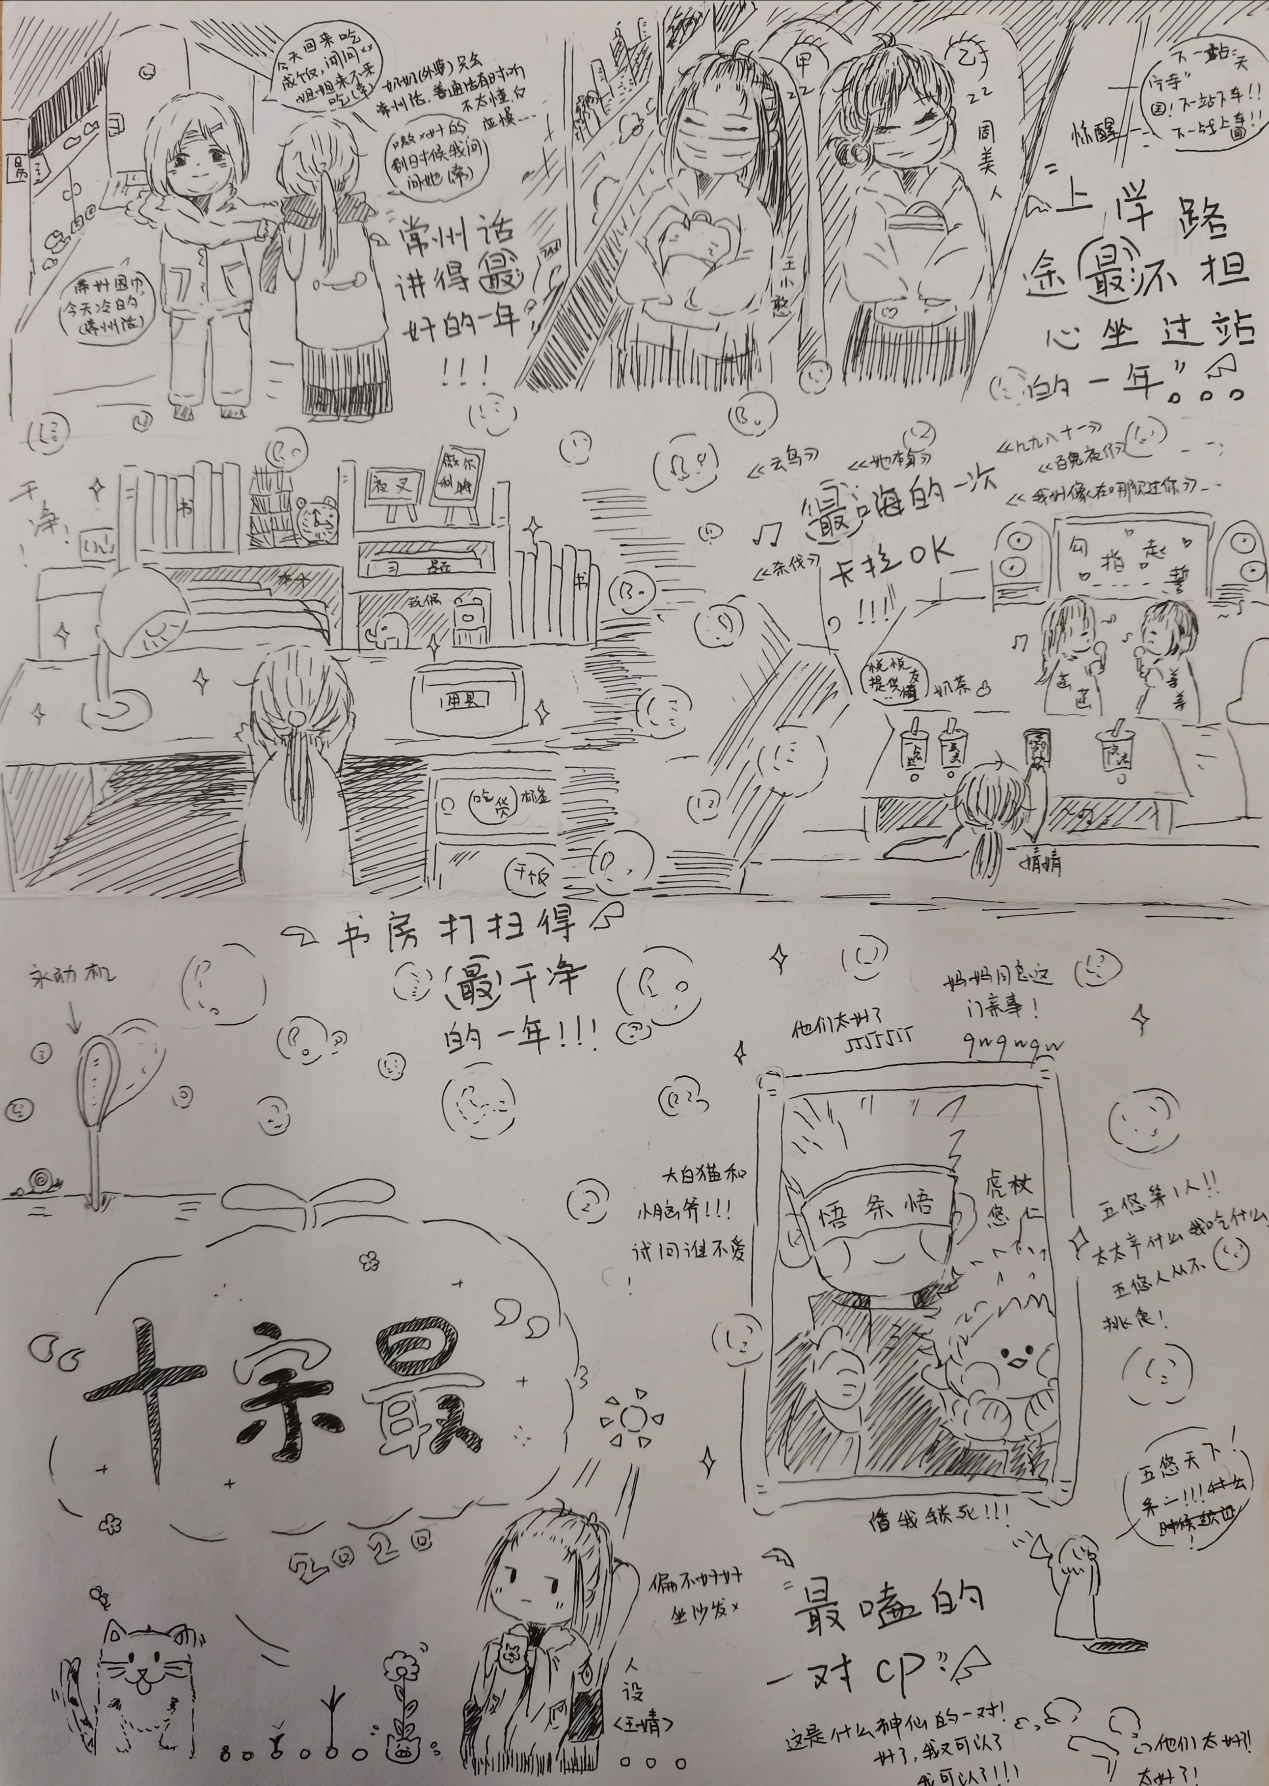 今天回来吃
成饭,问问xx
姐姐来不来
吃(常)
奶奶(外婆)只会
常州话.普通话有时听
不太懂
应慢...
嗷xx的
到时候我问
问她(常)
今天冷的
(常州话)
常州话
讲得最
好的一年
!!!
甲
22
王小憨
乙
22
周美人
惊醒
下一站天
宁寺
下一站下车!!
上学路
途最不担
心坐过站
的一年
干净!
书
夜叉
书
用具
吃货
干饭
书房打扫得
最干净
的一年!!!
《云鸟》
《她本身》
《九九八十一》
《百鬼夜行》
《我好像在哪见过你》
最嗨的一次
《杀伐》
卡拉OK
!!!!
勾指起誓
悦悦
提供友情
奶茶
婧婧
永动机
十宗最
2020
偏不好好
坐沙发x
人设
<王婧>
他们太好了
JJJJJJJ
妈妈同意这
门亲事!
qwqwqw
大白猫和
小脑斧!!!
试问谁不爱
!
悟条悟
虎杖
悠仁
五悠第1人!!
太太产什么我吃什么
五悠人从不
挑食!
五悠天下
第一!!!什么
时候结婚
!
借我锁死!!!
最嗑的
一对CP
这是什么神仙的一对!
好了,我又可以了
我可以了!!!
他们太好!
太好了!